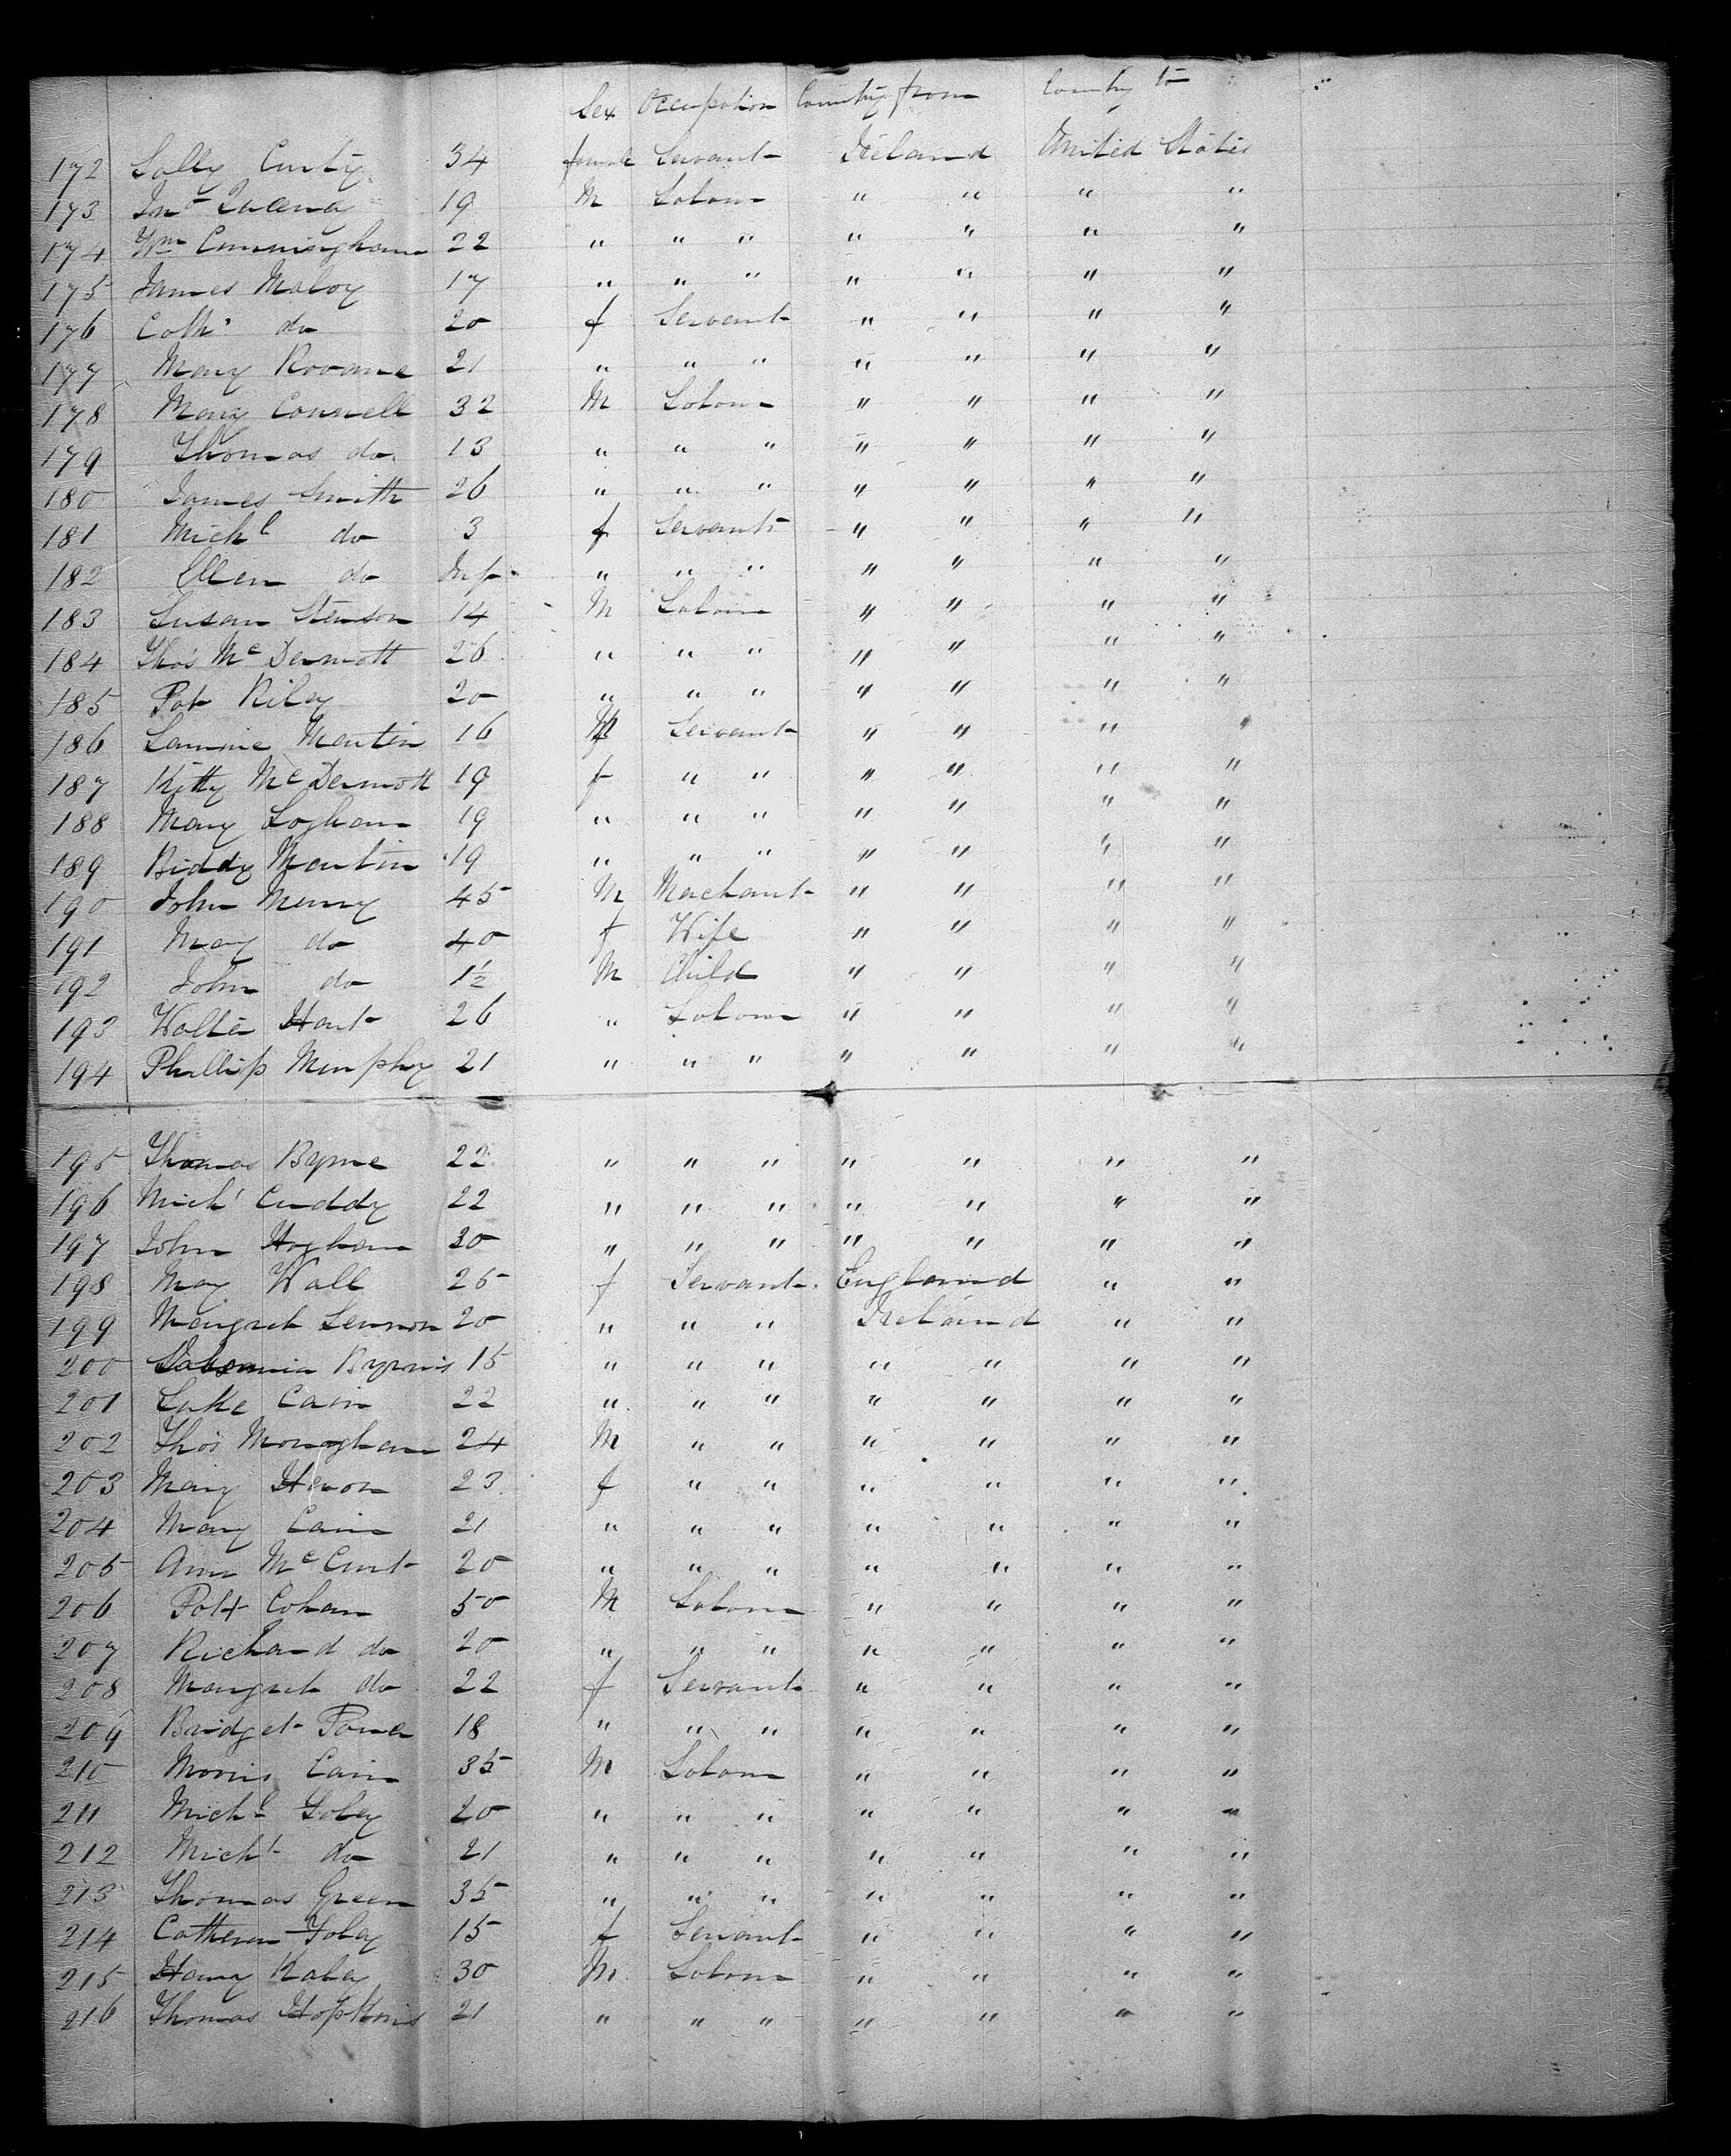 Sex Occupation Country from Country to
172 Sally Curty 34 female Servant Ireland United States
173 Jno 19 M Labour " " " "
174 Wm Cunningham 22 " " " " " " "
175 James Maloy 17 " " " " " " "
176 Cath. do 20 f Servant " " " "
177 Mary Rovane 21 " " " " " " "
178 Mary Connell 32 M Labour " " " "
179 Thomas do. 13 " " " " " " "
180 James Smith 26 " " " " " " "
181 Michl do 3 f Servant " " " "
182 Ellen do Inf. " " " " " " "
183 Susan Stenson 14 M Labour " " " "
184 Thos McDermott 26 " " " " " " "
185 Pat Riley 20 " " " " " " "
186 Martin 16 f Servant " " " "
187 Kitty McDermott 19 f " " " " " "
188 Mary Logham 19 " " " " " " "
189 Biddy Martin 19 " " " " " " "
190 John Murry 45 M Machant " " " "
191 Mary do 40 f Wife " " " "
192 John do 1½ M Child " " " "
193 Walter Hart 26 " Labour " " " "
194 Phillip Murphy 21 " " " " " " "
195 Thomas Byrne 22 " " " " " " "
196 Michl Cuddy 22 " " " " " " "
197 John Hogham 30 " " " " " " "
198 May Wall 25 f Servant England " "
199 Margret Lennon 20 " " " Ireland " "
200 Byrnis 15 " " " " " " "
201 Luke Cain 22 " " " " " " "
202 Thos Monogham 24 M " " " " " "
203 Mary Heron 23 f " " " " " "
204 Mary Cain 21 " " " " " " "
205 Ann McCurt 20 " " " " " " "
206 Patt Cohan 50 M Labour " " " "
207 Richard do 20 " " " " " " "
208 Margret do 22 f Servant " " " "
209 Bridget Power 18 " " " " " " "
210 Morris Cain 35 M Labour " " " "
211 Michl Foley 20 " " " " " " "
212 Michl do 21 " " " " " " "
213 Thomas Green 35 " " " " " " "
214 Cathern Foley 15 f Servant " " " "
215 Haley 30 M Labour " " " "
216 Thomas Hopkins 21 " " " " " " "